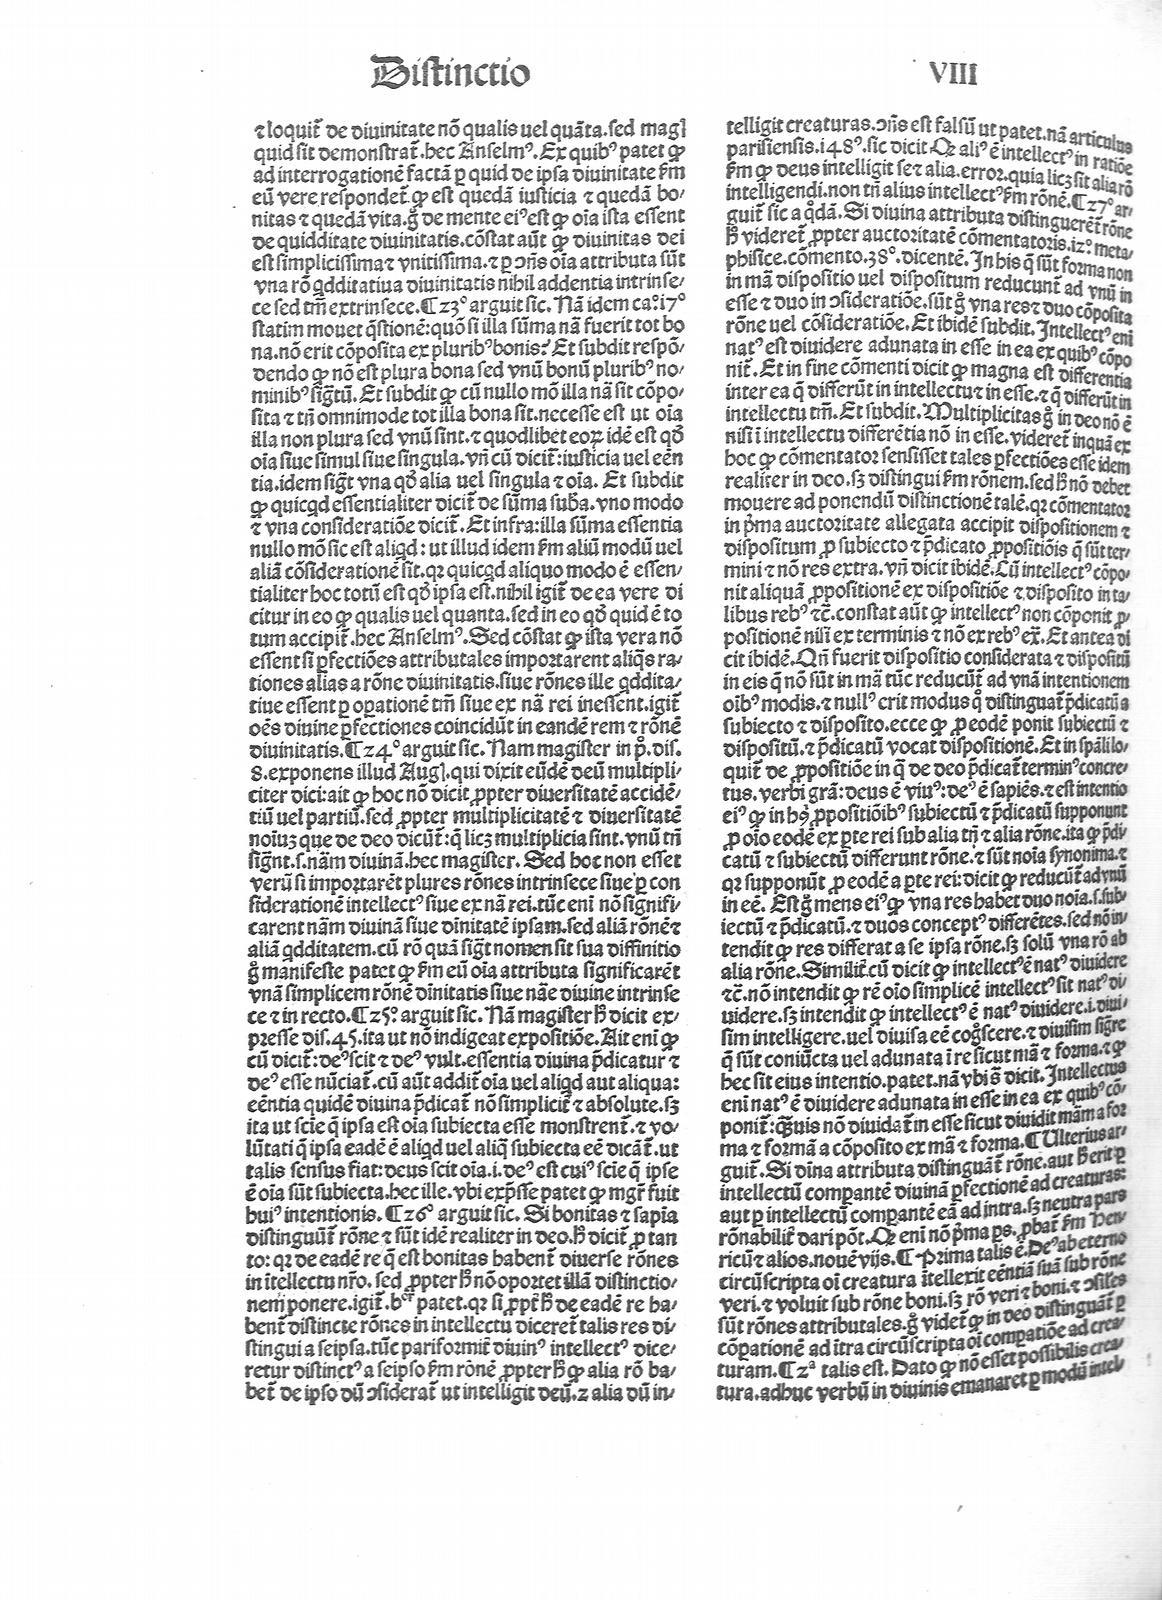 Distinctio
VIII
⁊ loquit̃ de diuinitate nõ qualis uel quãta. sed magl
quid sit demonstrat̃. hec Anselmꝰ. Ex quibꝰ patet ꝙ
ad interrogationẽ factã ꝑ quid de ipsa diuinitate fm̃
eũ vere respondet̃ ꝙ est quedã iusticia ⁊ quedã bo/
nitas ⁊ quedã vita. g̊ de mente eiꝰ est ꝙ oĩa ista essent
de quidditate diuinitatis. cõstat aũt ꝙ diuinitas dei
est simplicissima ⁊ vnitissima. ⁊ ꝑ ꝯñs oĩa attributa sũt
vna rõ qdditatiua diuinitatis nihil addentia intrinse/
ce sed tm̃ extrinsece. ¶ 23º arguit sic. Nã idem ca. 17º
statim mouet q̃stionẽ: quõ si illa sũma nã fuerit tot bo
na. nõ erit cõposita ex pluribꝰ bonis? Et subdit respõ/
dendo ꝙ nõ est plura bona sed vnũ bonũ pluribꝰ no/
minibꝰ sig̃tũ. Et subdit ꝙ cũ nullo mõ illa nã sit cõpo/
sita ⁊ tñ omnimode tot illa bona sit. necesse est ut oĩa
illa non plura sed vnũ sint. ⁊ quodlibet eoꝝ idẽ est qđ
oĩa siue simul siue singula. vñ cũ dicit̃: iusticia uel eẽn
tia. idem sig̃t vna qđ alia uel singula ⁊ oĩa. Et subdit
ꝙ quicqd essentialiter dicit̃ de sũma suba. vno modo
⁊ vna consideratiõe dicit̃. Et infra: illa sũma essentia
nullo mõ sic est aliqd: ut illud idem fm̃ aliũ modũ uel
aliã cõsiderationẽ sit. qꝛ quicqd aliquo modo ẽ essen/
tialiter hoc totũ est qđ ipsa est. nihil igit̃ de ea vere di
citur in eo ꝙ qualis uel quanta. sed in eo qđ quid ẽ to
tum accipit̃. hec Anselmꝰ. Sed cõstat ꝙ ista vera nõ
essent si ꝑfectiões attributales importarent aliq̃s ra/
tiones alias a rõne diuinitatis. siue rõnes ille qddita/
tiue essent ꝑ oꝑationẽ tm̃ siue ex nã rei inessent. igit̃
oẽs diuine ꝑfectiones coincidũt in eandẽ rem ⁊ rõnẽ
diuinitatis. ¶ 24º arguit sic. Nam magister in p̊. dis.
8. exponens illud Augl. qui dixit eũdẽ deũ multipli/
citer dici: ait ꝙ hoc nõ dicit ꝓpter diuersitatẽ accidẽ/
tiũ uel partiũ. sed ꝓpter multiplicitatẽ ⁊ diuersitatẽ
noiuꝫ que de deo dicũt̃: q̃ licꝫ multiplicia sint. vnũ tñ
sig̃nt. s. nãm diuinã. hec magister. Sed hoc non esset
verũ si importarẽt plures rõnes intrinsece siue ꝑ con
siderationẽ intellectꝰ siue ex nã rei. tũc eni nõ signifi/
carent nãm diuinã siue dĩnitatẽ ipsam. sed aliã rõnẽ ⁊
aliã qdditatem. cũ rõ quã sig̃t nomen sit sua diffinitio
g̊ manifeste patet ꝙ fm̃ eũ oĩa attributa significarẽt
vnã simplicem rõnẽ dĩnitatis siue nãe diuine intrinse
ce ⁊ in recto. ¶ 25º. arguit sic. Nã magister h̃ dicit ex/
presse dis. 45. ita ut nõ indigeat expositiõe. Ait eni ꝙ
cũ dicit̃: deꝰ scit ⁊ deꝰ vult. essentia diuina p̃dicatur ⁊
deꝰ esse nũciat̃. cũ aũt addit̃ oĩa uel aliqd aut aliqua:
eẽntia quidẽ diuina p̃dicat̃ nõ simplicit̃ ⁊ absolute. sꝫ
ita ut scie q̃ ipsa est oĩa subiecta esse monstrent̃. ⁊ vo/
lũtati q̃ ipsa eadẽ ẽ aliqd uel aliq̃ subiecta eẽ dicãt̃. ut
talis sensus fiat: deus scit oĩa. i. deꝰ est cuiꝰ scie q̃ ipse
ẽ oĩa sũt subiecta. hec ille. vbi exp̃sse patet ꝙ mgr̃ fuit
huiꝰ intentionis. ¶ 26º arguit sic. Si bonitas ⁊ sapĩa
distinguũt̃ rõne ⁊ sũt idẽ realiter in deo. h̃ dicit̃ ꝓ tan
to: qꝛ de eadẽ re q̃ est bonitas habent̃ diuerse rõnes
in ĩtellectu nr̃o. sed ꝓpter h̃ nõ oportet illã distinctio/
nem ponere. igit̃. hᶜʳ patet. qꝛ si ꝓpt̃ h̃ de eadẽ re ha/
bent̃ distincte rõnes in intellectu diceret̃ talis res di/
stingui a seipsa. tũc pariformit̃ diuinꝰ intellectꝰ dice/
retur distinctꝰ a seipso fm̃ rõnẽ ꝓpter h̃ ꝙ alia rõ ha/
bet̃ de ipso dũ ꝯsiderat̃ ut intelligit deũ. ⁊ alia dũ in/
telligit creaturas. ꝯñs est falsũ ut patet. nã articulus
parisiensis. 148ꝰ. sic dicit Qꝛ aliꝰ ẽ intellectꝰ in ratiõe
fm̃ ꝙ deus intelligit se ⁊ alia. error. quia licꝫ sit alia rõ
intelligendi. non tñ alius intellectꝰ fm̃ rõnẽ. ¶ 27º ar/
guit̃ sic a q̃dã. Si diuina attributa distinguerẽt̃ rõne
h̃ videret̃ ꝓpter auctoritatẽ cõmentatoris. 12º. meta/
phisice. cõmento. 38º. dicentẽ. In his q̃ sũt forma non
in mã dispositio uel dispositum reducunt̃ ad vnũ in
esse ⁊ duo in ꝯsideratiõe. sũt g̊ vna res ⁊ duo cõposita
rõne uel cõsideratiõe. Et ibidẽ subdit. Intellectꝰ eni
natꝰ est diuidere adunata in esse in ea ex quibꝰ cõpo
nit̃. Et in fine cõmenti dicit ꝙ magna est differentia
inter ea q̃ differũt in intellectu ⁊ in esse. ⁊ q̃ differũt in
intellectu tm̃. Et subdit. Multiplicitas g̊ in deo nõ ẽ
nisi ĩ intellectu differẽtia nõ in esse. videret̃ inquã ex
hoc ꝙ cõmentator sensisset tales ꝑfectiões esse idem
realiter in deo. sꝫ distingui fm̃ rõnem. sed h̃ nõ debet
mouere ad ponendũ distinctionẽ talẽ. qꝛ cõmentator
in p̃ma auctoritate allegata accipit dispositionem ⁊
dispositum ꝓ subiecto ⁊ p̃dicato ꝓpositiõis q̃ sũt ter/
mini ⁊ nõ res extra. vñ dicit ibidẽ. Cũ intellectꝰ cõpo/
nit aliquã ꝓpositionẽ ex dispositiõe ⁊ disposito in ta/
libus rebꝰ ⁊c̃. constat aũt ꝙ intellectꝰ non cõponit ꝓ/
positionẽ nisi ex terminis ⁊ nõ ex rebꝰ ex̃. Et antea di
cit ibidẽ. Qñ fuerit dispositio considerata ⁊ dispositũ
in eis q̃ nõ sũt in mã tũc reducũt̃ ad vnã intentionem
oibꝰ modis. ⁊ nullꝰ erit modus q̊ distinguat̃ p̃dicatũ a
subiecto ⁊ disposito. ecce ꝙ ꝓ eodẽ ponit subiectũ ⁊
dispositũ. ⁊ p̃dicatũ vocat dispositionẽ. Et in spãli lo/
quit̃ de ꝓpositiõe in q̃ de deo p̃dicat̃ terminꝰ concre/
tus. verbi grã: deus ẽ viuꝰ: deꝰ ẽ sapiẽs. ⁊ est intentio
eiꝰ ꝙ in hꝰ ꝓpositiõibꝰ subiectũ ⁊ p̃dicatũ supponunt
ꝓ oĩo eodẽ ex ꝑte rei sub alia tñ ⁊ alia rõne. ita ꝙ p̃di/
catũ ⁊ subiectũ differunt rõne. ⁊ sũt noĩa synonima. ⁊
qꝛ supponũt ꝓ eodẽ a ꝑte rei: dicit ꝙ reducũt̃ ad vnũ
in eẽ. Est g̊ mens eiꝰ ꝙ vna res habet duo noĩa. s. sub/
iectũ ⁊ p̃dicatũ. ⁊ duos conceptꝰ differẽtes. sed nõ in/
tendit ꝙ res differat a se ipsa rõne. sꝫ solũ vna rõ ab
alia rõne. Similit̃ cũ dicit ꝙ intellectꝰ ẽ natꝰ diuidere
⁊c̃. nõ intendit ꝙ rẽ oĩo simplicẽ intellectꝰ sit natꝰ di/
uidere. sꝫ intendit ꝙ intellectꝰ ẽ natꝰ diuidere. i. diui/
sim intelligere. uel diuisa eẽ cog̃scere. ⁊ diuisim sig̃re
q̃ sũt coniũcta uel adunata ĩ re sicut mã ⁊ forma. ⁊ ꝙ
hec sit eius intentio. patet. nã vbi s̃ dicit. Intellectus
eni natꝰ ẽ diuidere adunata in esse in ea ex quibꝰ cõ/
ponit̃: q̃uis nõ diuidat̃ in esse sicut diuidit mãm a for
ma ⁊ formã a cõposito ex mã ⁊ forma. ¶ Ulterius ar/
guit̃. Si diña attributa distinguãt̃ rõne. aut h̃ erit ꝑ
intellectũ comparantẽ diuinã ꝑfectionẽ ad creaturas:
aut ꝑ intellectũ comparantẽ eã ad intra. sꝫ neutra pars
rõnabilit̃ dari põt. Qꝛ eni nõ p̃ma ps. ꝓbat̃ fm̃ Hen/
ricũ ⁊ alios. nouẽ vijs. ¶ Prima talis ẽ. Deꝰ ab eterno
circũscripta oĩ creatura ĩtellexit eẽntiã suã sub rõne
veri. ⁊ voluit sub rõne boni. sꝫ rõ veri ⁊ boni. ⁊ ꝯsiles
sũt rõnes attributales. g̊ videt̃ ꝙ in deo distinguãt̃ ꝑ
cõꝑationẽ ad ĩtra circũscripta oĩ comꝑatiõe ad crea/
turam. ¶ 2ª talis est. Dato ꝙ nõ esset possibilis crea/
tura. adhuc verbũ in diuinis emanaret ꝑ modũ intel/